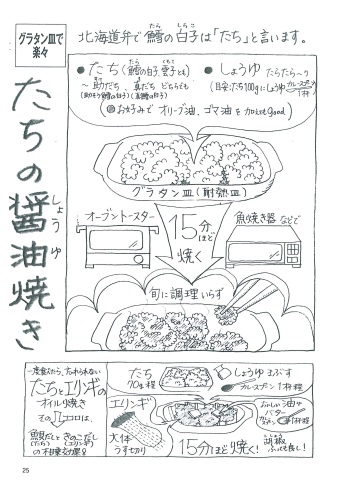 グラタン皿で
楽々
たちの醤油焼き
しょうゆ
北海道弁で鱈の白子は「たち」と言います。
たら しらこ
● たち(鱈の白子、雲子とも)
～助だち、真だち どちらも
● しょうゆ たらたら～り
(目安:たち100gにしょうゆカレースプーン1杯)
(お好みで オリーブ油、ゴマ油を加えてもGood)
グラタン皿(耐熱皿)
オーブントースター
15分
ほど
焼く
魚焼き器などで
旬に調理いらず
一度食べたら、忘れられない
たちとエリンギの
オイル焼き
その ココロは、
魚貝だしときのこだし
(たち) (エリンギ)
の相乗効果
たち
70g程
しょうゆ まぶす
カレースプーン1杯程
エリンギ
大体
うす切り
おいしい油や
バター
15分ほど焼く!
胡椒
ふっても良し!
25